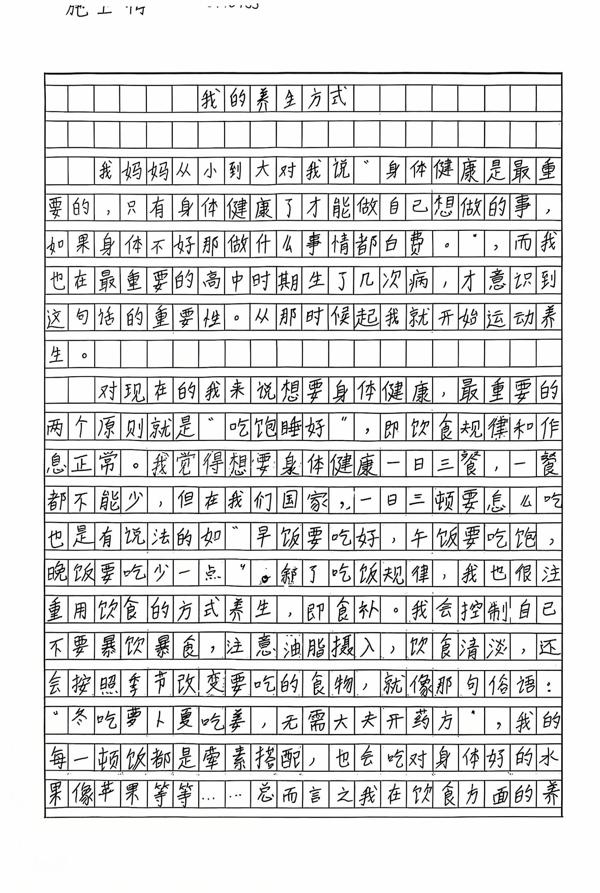 我的养生方式
我妈妈从小到大对我说“身体健康是最重
要的，只有身体健康了才能做自己想做的事，
如果身体不好那做什么事情都白费。”，而我
也在最重要的高中时期生了几次病，才意识到
这句话的重要性。从那时候起我就开始运动养
生。
对现在的我来说想要身体健康，最重要的
两个原则就是“吃饱睡好”，即饮食规律和作
息正常。我觉得想要身体健康一日三餐，一餐
都不能少，但在我们国家，一日三顿要怎么吃
也是有说法的如“早饭要吃好，午饭要吃饱，
晚饭要吃少一点”。除了吃饭规律，我也很注
重用饮食的方式养生，即食补。我会控制自己
不要暴饮暴食，注意油脂摄入，饮食清淡，还
会按照季节改变要吃的食物，就像那句俗语：
“冬吃萝卜夏吃姜，无需大夫开药方”，我的
每一顿饭都是荤素搭配，也会吃对身体好的水
果像苹果等等……总而言之我在饮食方面的养